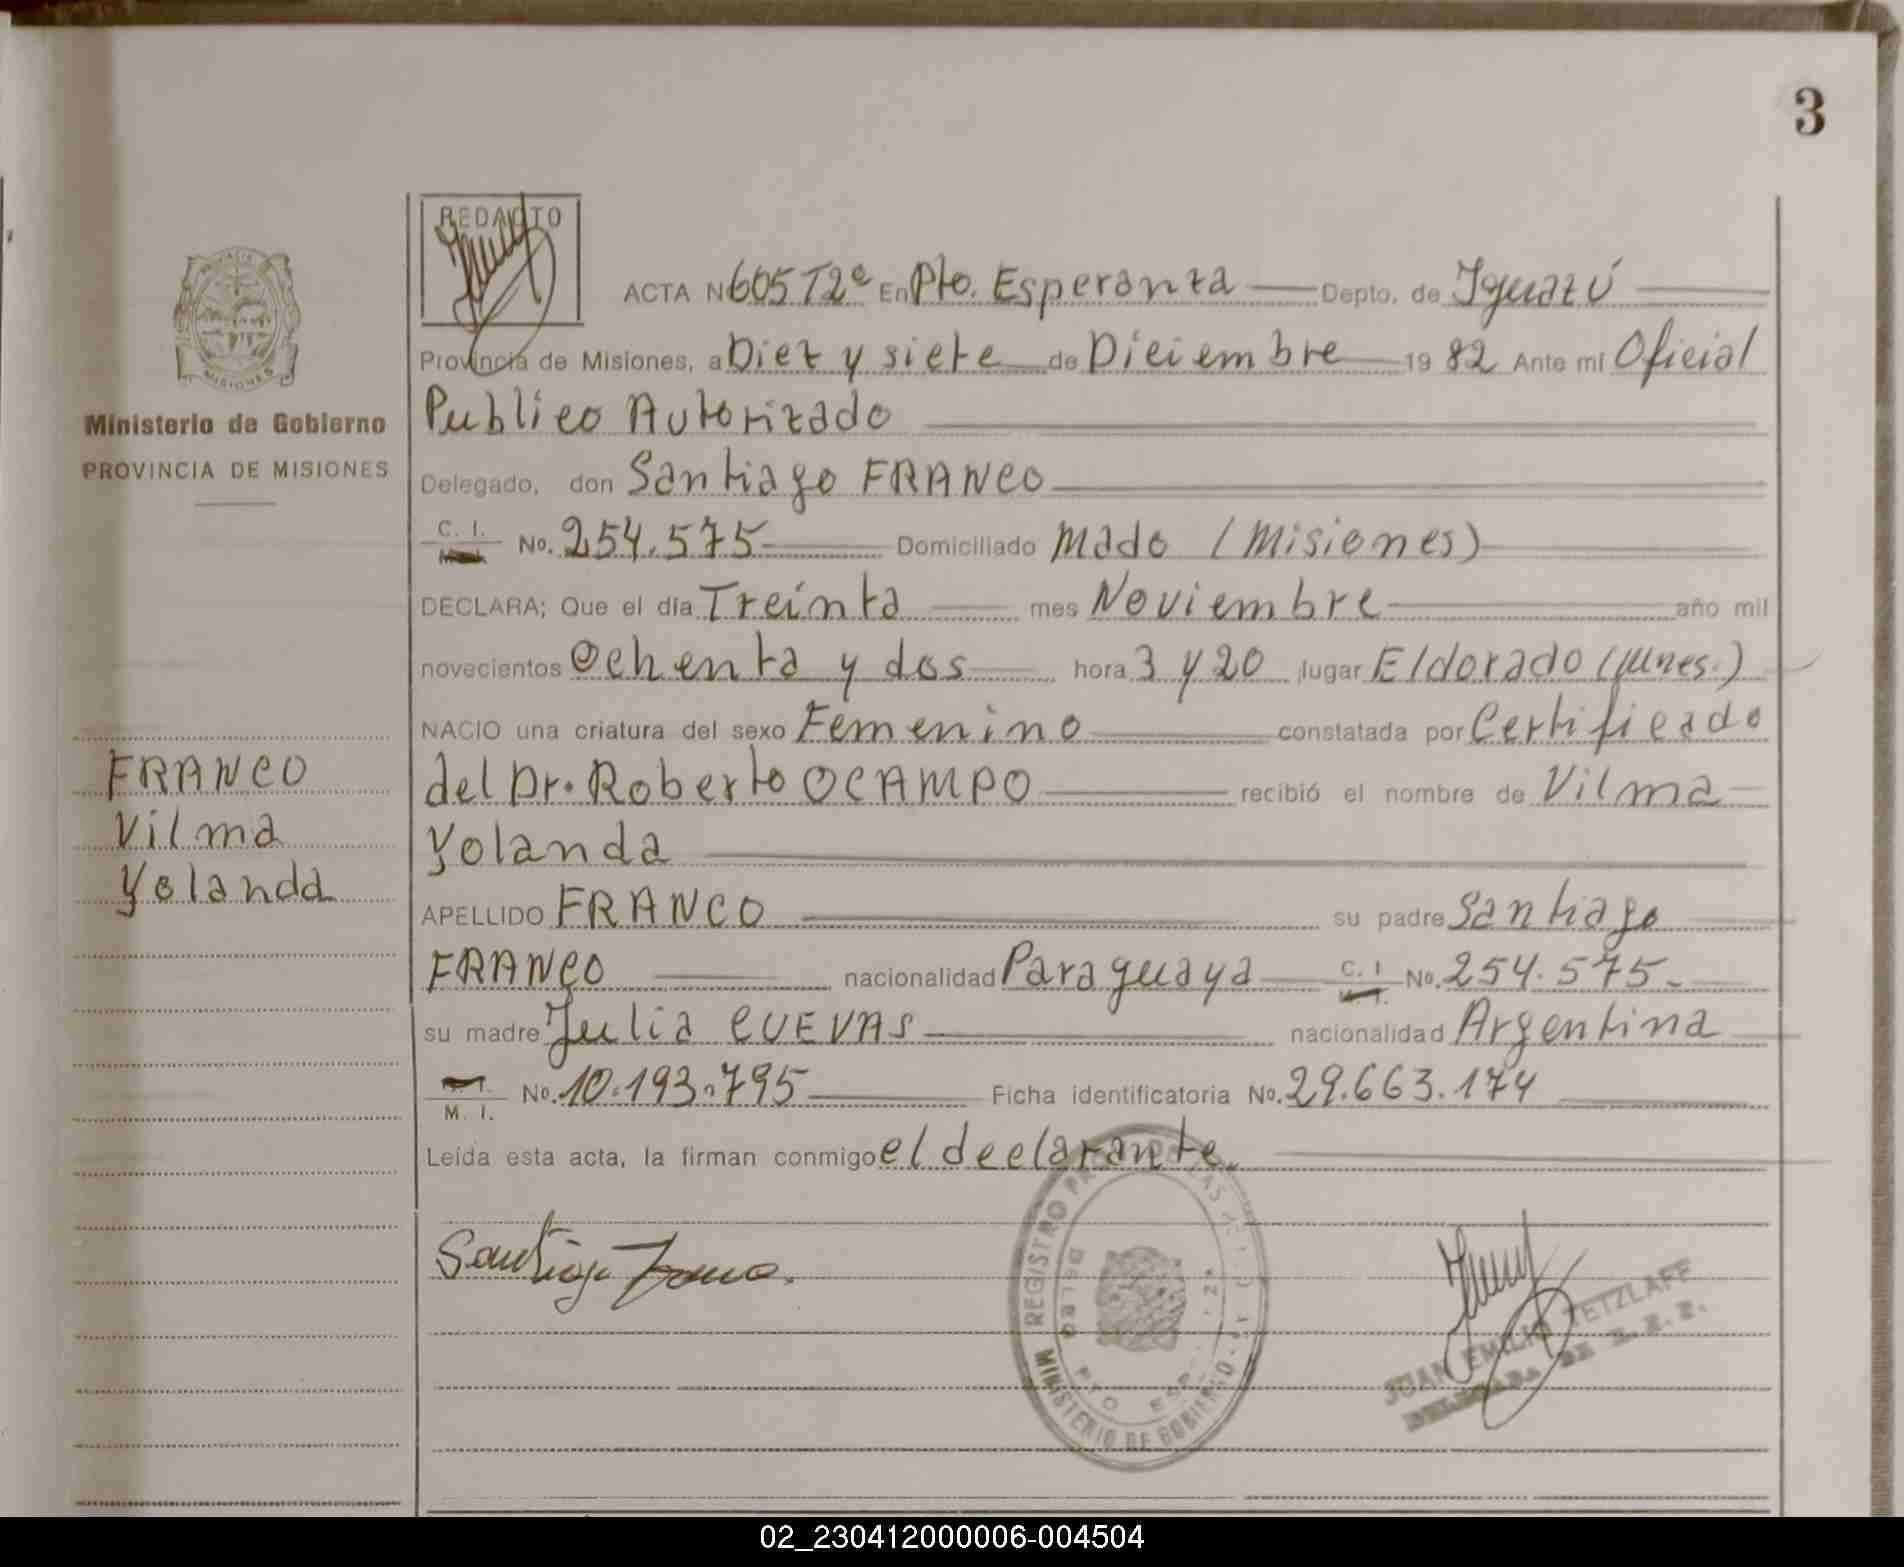 3
REDACTO
ACTA N 605 T2º En Pto. Esperanza Depto. de Iguazú
Provincia de Misiones, a Diez y siete de Diciembre 1982 Ante mí Oficial
Publico Autorizado
Delegado, don Santiago FRANCO
C. I. No. 254.575 Domiciliado Mado (Misiones)
DECLARA; Que el día Treinta mes Noviembre año mil
novecientos Ochenta y dos hora 3 y 20 lugar Eldorado (Mnes.)
NACIO una criatura del sexo Femenino constatada por Certificado
del Dr. Roberto OCAMPO recibió el nombre de Vilma
Yolanda
APELLIDO FRANCO su padre Santiago
FRANCO nacionalidad Paraguaya C. I No. 254.575.-
su madre Julia CUEVAS nacionalidad Argentina
M. I. No. 10.193.795 Ficha identificatoria No. 29.663.174
Leída esta acta, la firman conmigo el declarante.
MISIONES
Ministerio de Gobierno
PROVINCIA DE MISIONES
FRANCO
Vilma
Yolanda
Santiago Franco.
REGISTRO
MINISTERIO DE GOBIERNO
PTO ESP
JUAN EMILIO TETZLAFF
02_230412000006-004504